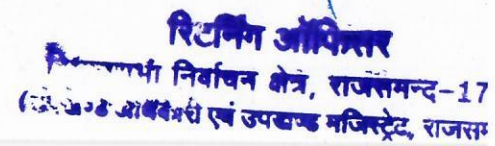 रिटर्निंग ऑफिसर
निर्वाचन क्षेत्र, राजसमन्द-17
एवं उपखण्ड मजिस्ट्रेट, राजसम